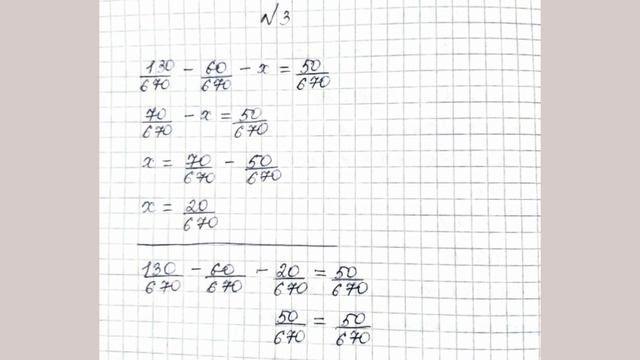 №3
130/670 - 60/670 - x = 50/670
70/670 - x = 50/670
x = 70/670 - 50/670
x = 20/670
130/670 - 60/670 - 20/670 = 50/670
50/670 = 50/670